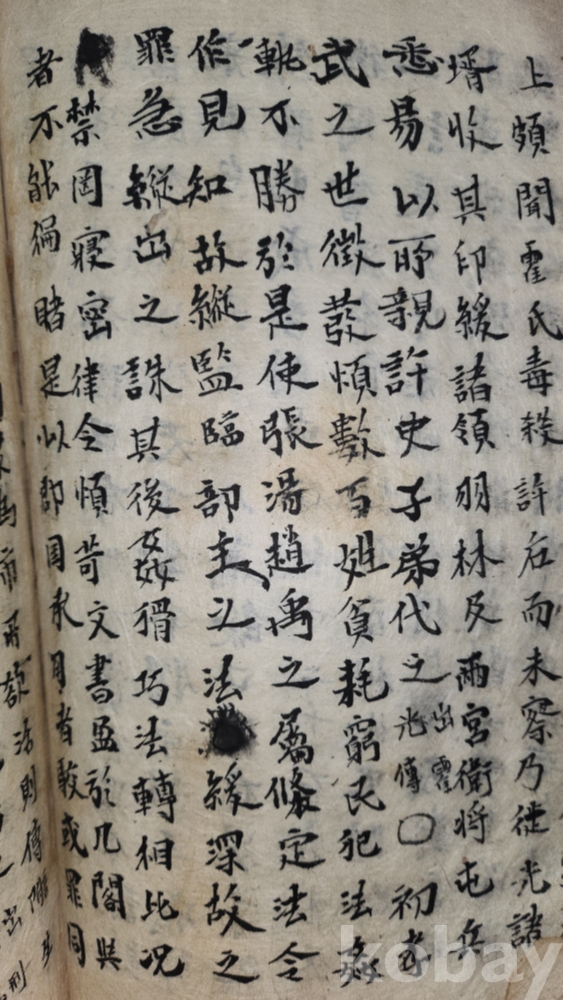 上頗聞霍氏毒殺許后而未察乃徙光諸
壻收其印綬諸領羽林及兩宮衛將屯兵
悉易以所親許史子弟代之出霍光傳○初孝
武之世徵發煩數百姓貧耗窮民犯法姦
軌不勝於是使張湯趙禹之屬條定法令
作見知故縱監臨部主之法緩深故之
罪急縱出之誅其後姦猾巧法轉相比況
禁罔寖密律令煩苛文書盈於几閣典
者不能徧睹是以郡國承用者駮或罪同
法則傳
kobay